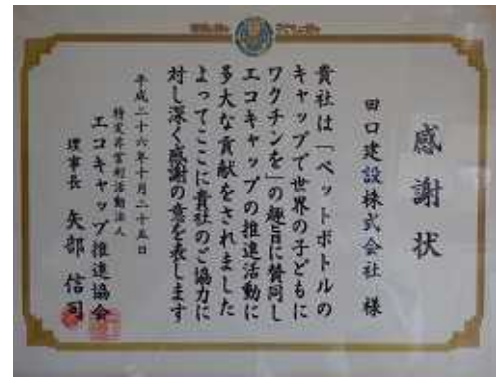 感謝状
田口建設株式会社 様
貴社は「ペットボトルの
キャップで世界の子どもに
ワクチンを」の趣旨に賛同し
エコキャップの推進活動に
多大な貢献をされました
よってここに貴社のご協力に
対し深く感謝の意を表します
平成二十六年十月二十五日
特定非営利活動法人
エコキャップ推進協会
理事長 矢部信司